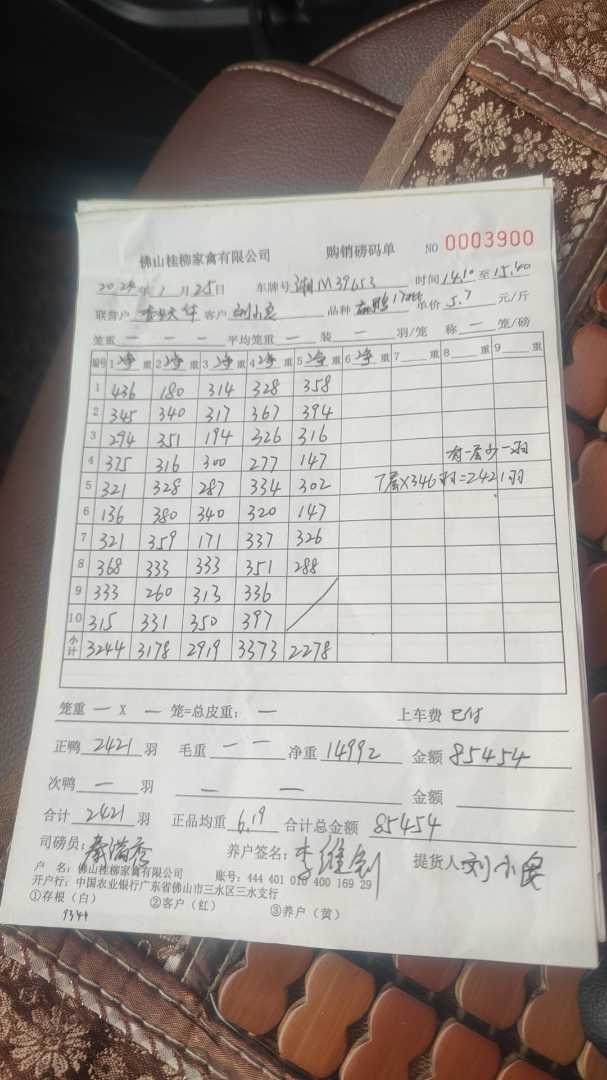 佛山桂柳家禽有限公司 购销磅码单 NO 0003900
2024年1月25日 车牌号 湘M39653 时间14.10至15.40
联营户 客户 刘小民 品种 单价 5.7 元/斤
笼重 — — — 平均笼重 — 装 — 羽/笼 称 — 笼/磅
编号 1净重 2净重 3净重 4净重 5净重 6净重 7 重 8 重 9 重
1 436 180 314 328 358
2 345 340 317 367 394
3 294 351 194 326 316
有一层少一羽
4 375 316 300 277 147
5 321 328 287 334 302 7层X346羽=2421羽
6 136 380 340 320 147
7 321 359 171 337 326
8 368 333 333 351 288
9 333 260 313 336
10 315 331 350 397
小计 3244 3178 2919 3373 2278
笼重 — X — 笼=总皮重: — 上车费 已付
正鸭 2421 羽 毛重 — — 净重 14992 金额 85454
次鸭 — 羽 — — 金额
合计 2421 羽 正品均重 6.19 合计总金额 85454
司磅员: 秦满秀 养户签名: 李维剑 提货人: 刘小民
户 名: 佛山桂柳家禽有限公司 账号: 444 401 010 400 169 29
开户行: 中国农业银行广东省佛山市三水区三水支行
①存根(白) ②客户(红) ③养户(黄)